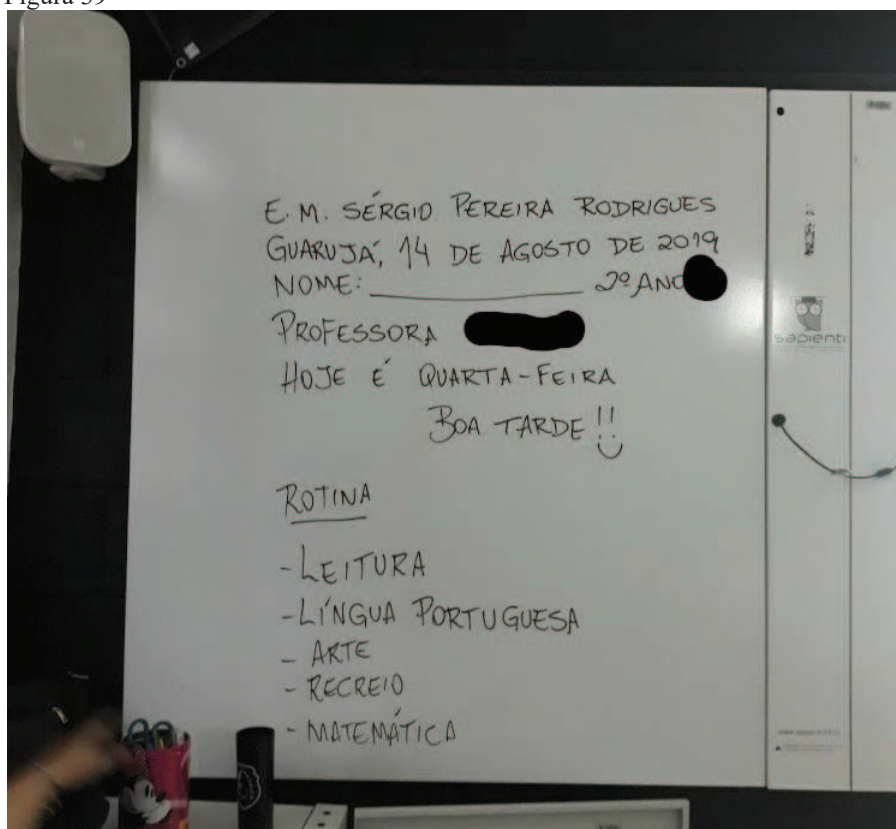 Figura 39
E. M. SÉRGIO PEREIRA RODRIGUES
GUARUJÁ, 14 DE AGOSTO DE 2019
NOME: ____________ 2º ANO
PROFESSORA
HOJE É QUARTA-FEIRA
BOA TARDE!!
ROTINA
- LEITURA
- LÍNGUA PORTUGUESA
- ARTE
- RECREIO
- MATEMÁTICA
sapienti